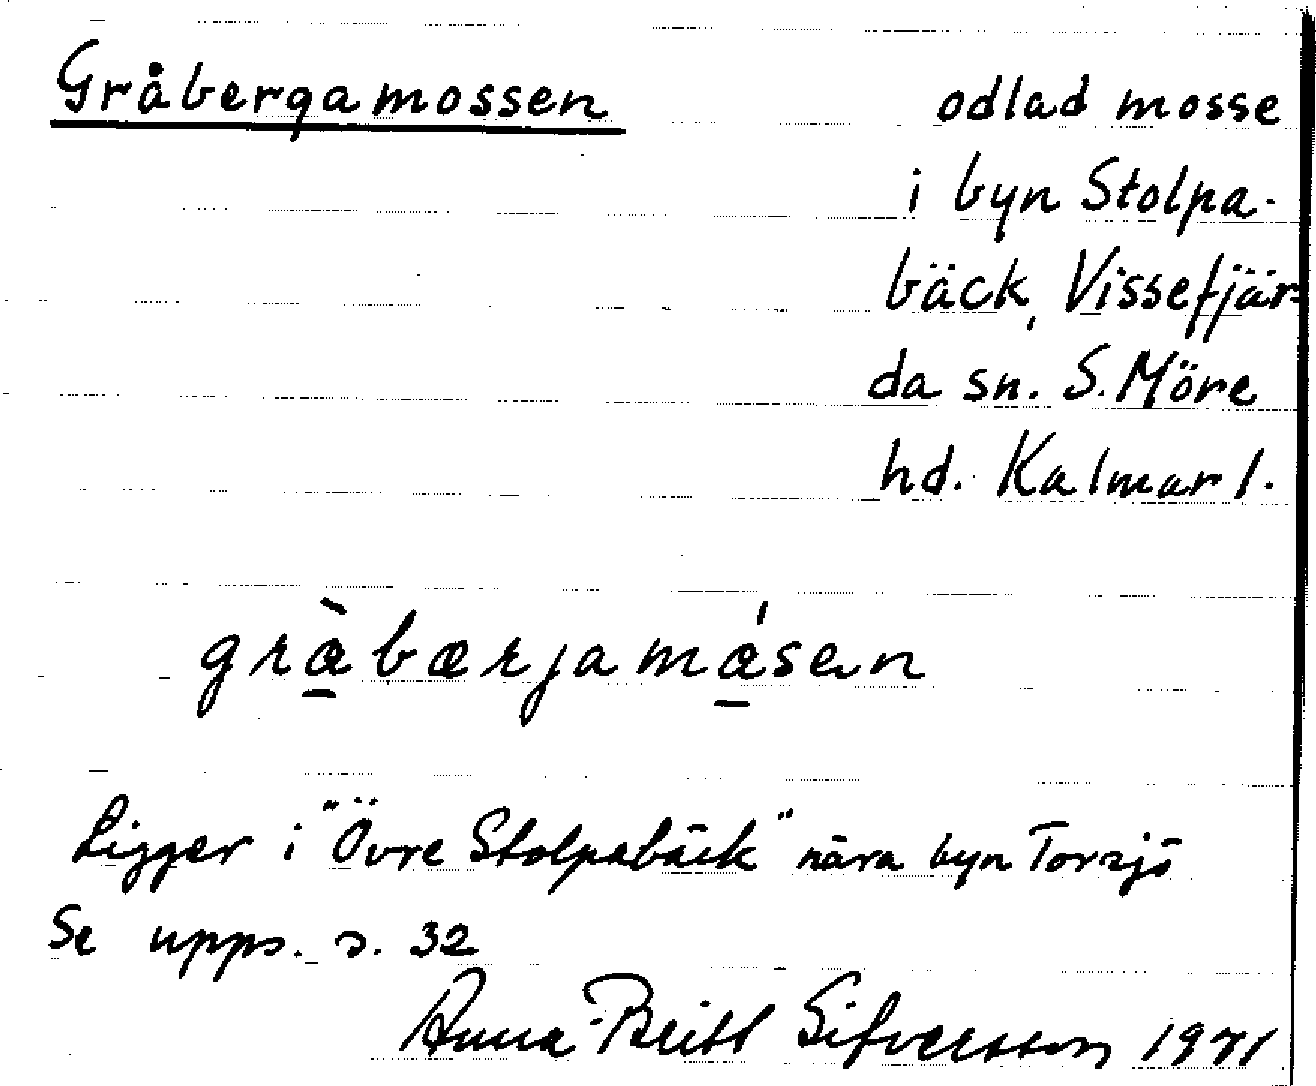 Gråbergamossen
odlad mosse
i byn Stolpa-
bäck, Vissefjär-
da sn. S. Möre
hd. Kalmar l.
græ̀bærjamǽsen
Ligger i "Övre Stolpabäck" nära byn Torsjö
Se upps. s. 32
Anna-Britt Sifversson 1971